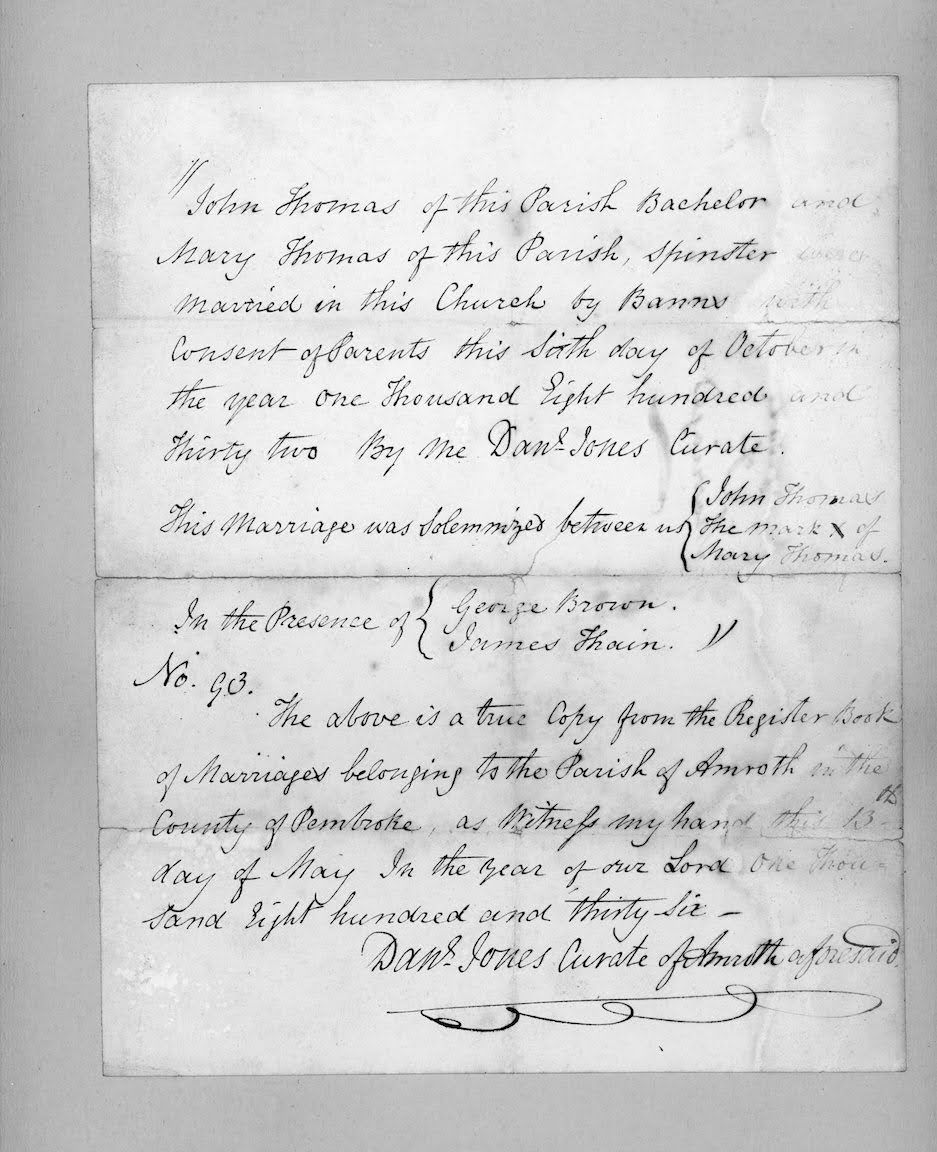 "John Thomas of this Parish Bachelor and
Mary Thomas of this Parish, Spinster were
Married in this Church by Banns with
Consent of Parents this Sixth day of October in
the year One Thousand Eight hundred and
Thirty two By Me Danl. Jones Curate.
This Marriage was Solemnized between us { John Thomas
The mark X of
Mary Thomas.
In the Presence of { George Brown.
James Thain. "
No. 93.
The above is a true Copy from the Register Book
of Marriages belonging to the Parish of Amroth in the
County of Pembroke, as Witness my hand this 13th
day of May In the year of our Lord One Thou-
sand Eight hundred and thirty Six –
Danl. Jones Curate of Amroth aforesaid.